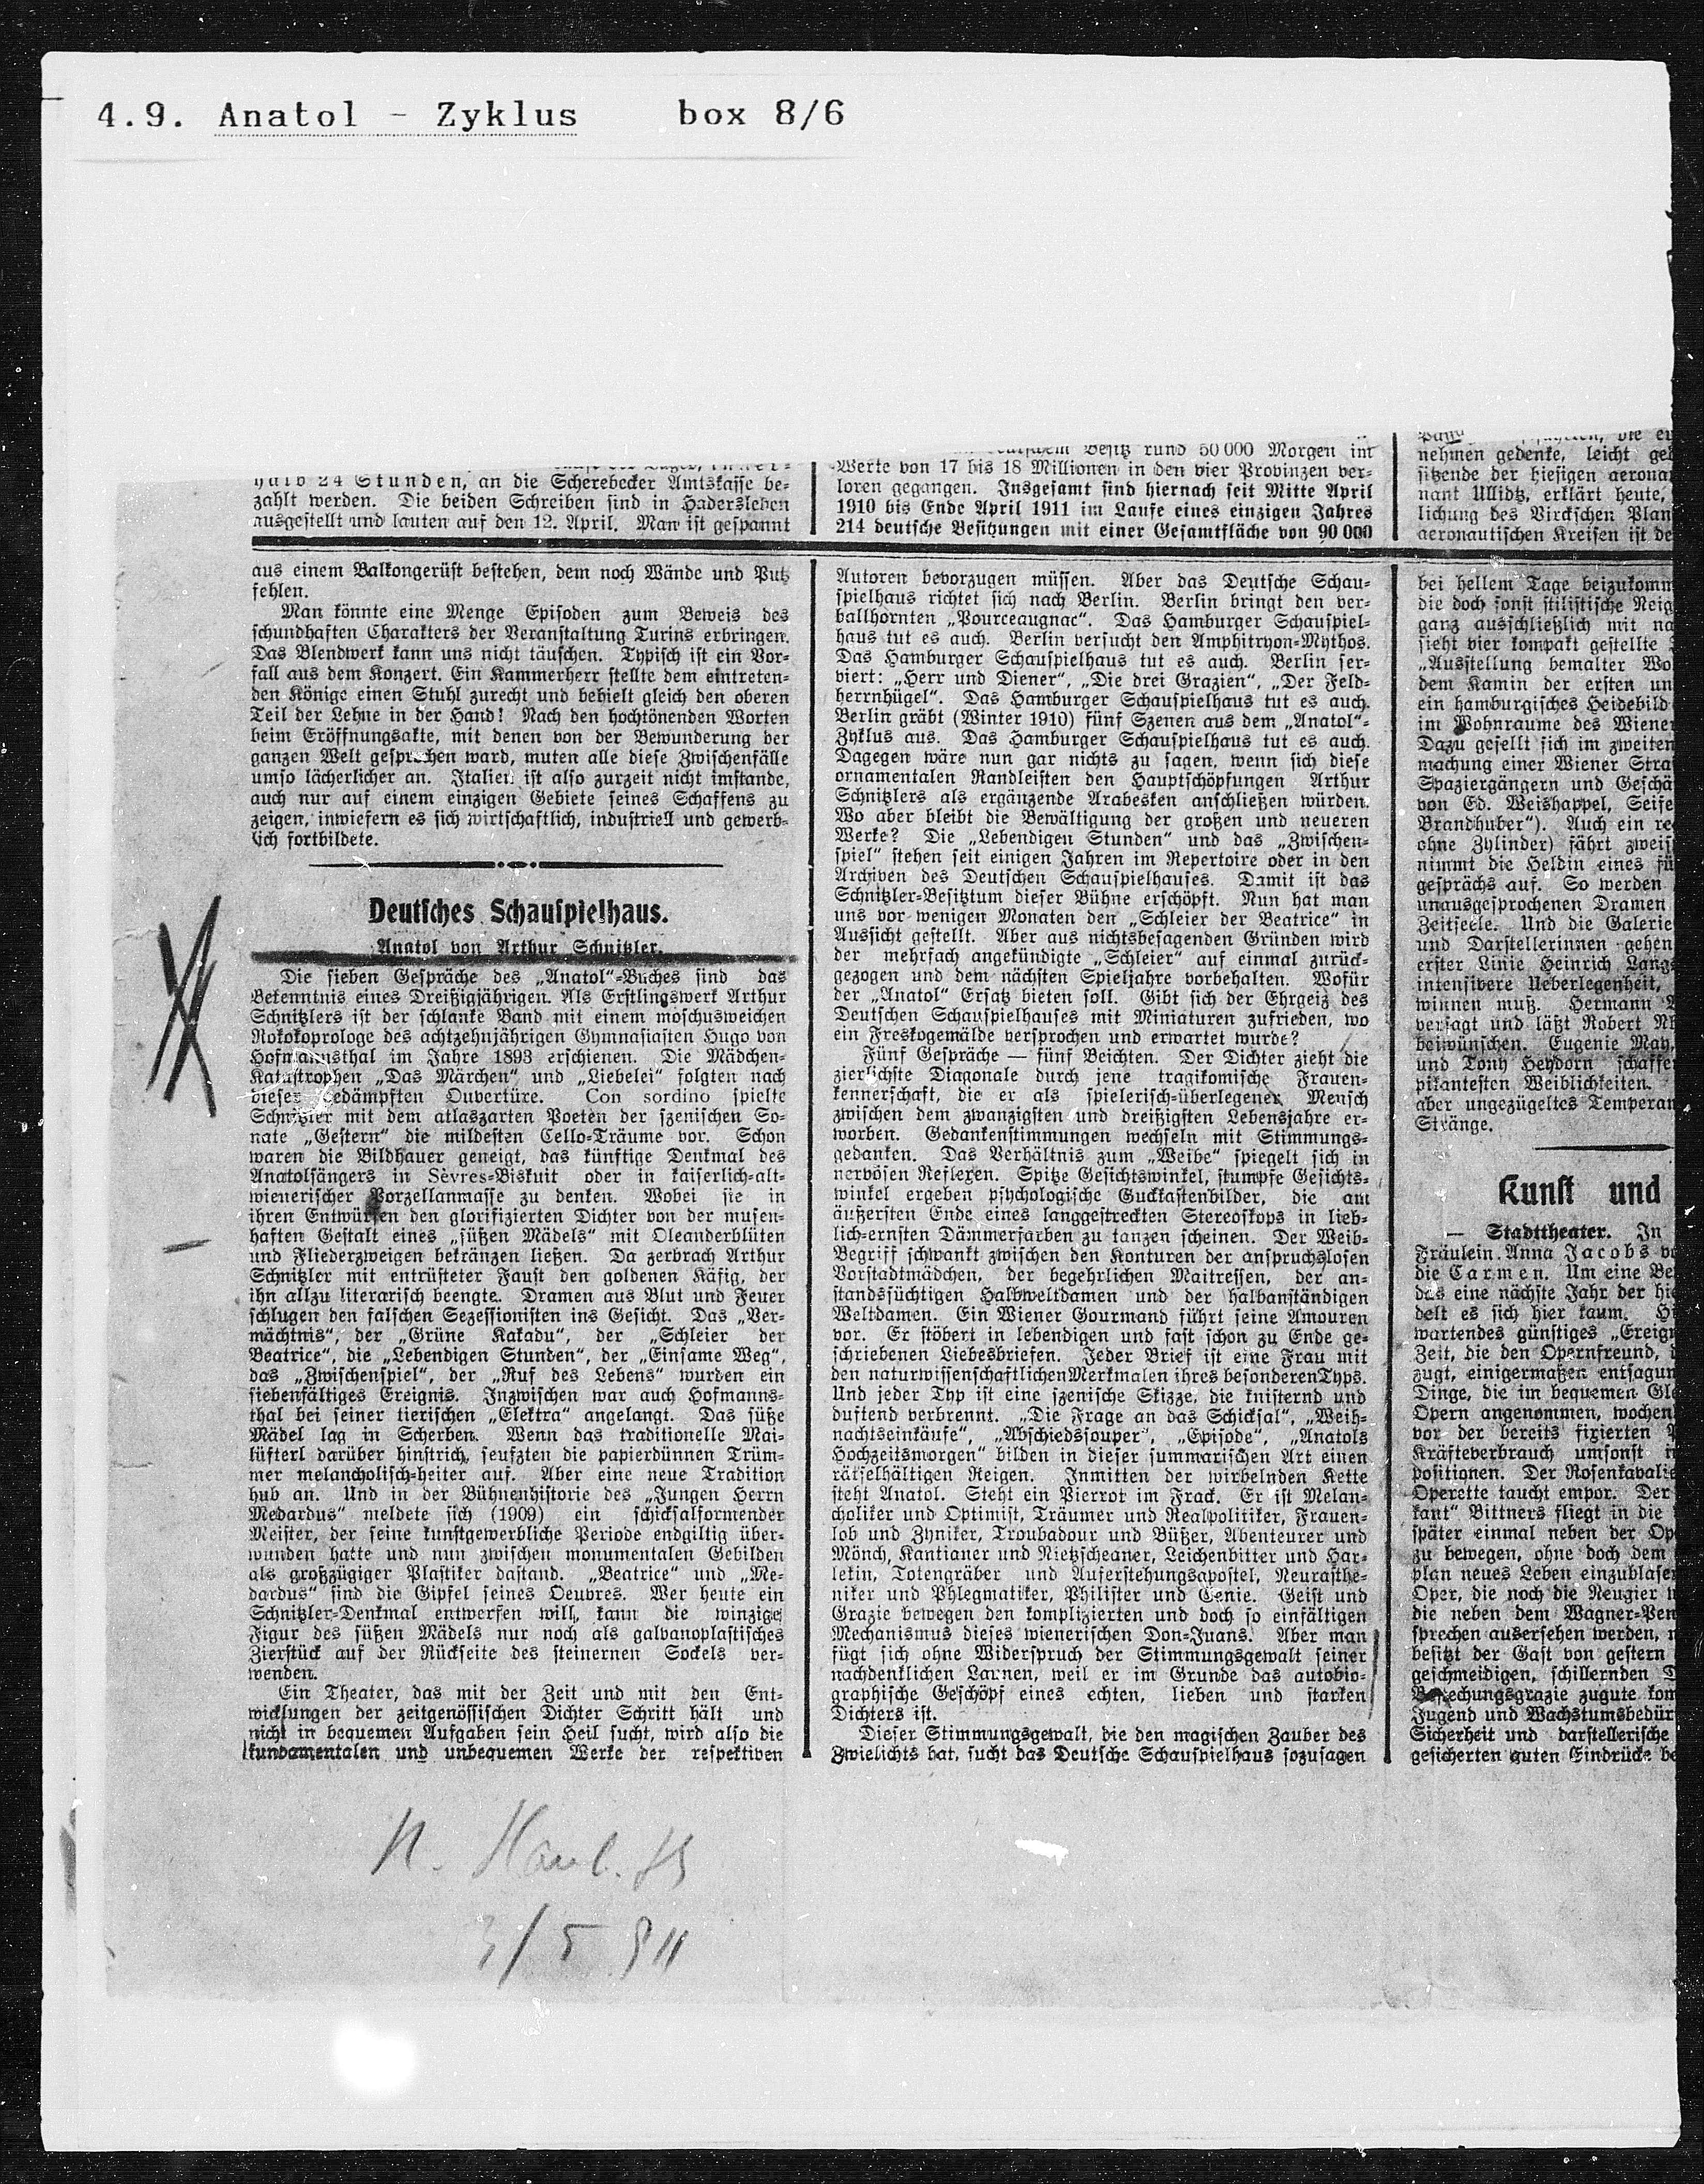 4.9. Anatol - Zyklus box 8/6
24 Stunden, an die Scherebecker Amtskasse be-
zahlt werden. Die beiden Schreiben sind in Hadersleben
ausgestellt und lauten auf den 12. April. Man ist gespannt
aus einem Balkongerüst bestehen, dem noch Wände und Putz
fehlen.
Man könnte eine Menge Episoden zum Beweis des
schundhaften Charakters der Veranstaltung Turins erbringen.
Das Blendwerk kann uns nicht täuschen. Typisch ist ein Vor-
fall aus dem Konzert. Ein Kammerherr stellte dem eintreten-
den Könige einen Stuhl zurecht und behielt gleich den oberen
Teil der Lehne in der Hand! Nach den hochtönenden Worten
beim Eröffnungsakte, mit denen von der Bewunderung der
ganzen Welt gesprochen ward, muten alle diese Zwischenfälle
umso lächerlicher an. Italien ist also zurzeit nicht imstande,
auch nur auf einem einzigen Gebiete seines Schaffens zu
zeigen, inwiefern es sich wirtschaftlich, industriell und gewerb-
lich fortbildete.
Deutsches Schauspielhaus.
Anatol von Arthur Schnitzler.
Die sieben Gespräche des „Anatol“-Buches sind das
Bekenntnis eines Dreißigjährigen. Als Erstlingswerk Arthur
Schnitzlers ist der schlanke Band mit einem moschusweichen
Rokokoprologe des achtzehnjährigen Gymnasiasten Hugo von
Hofmannsthal im Jahre 1893 erschienen. Die Mädchen-
Katastrophen „Das Märchen“ und „Liebelei“ folgten nach
dieser gedämpften Ouvertüre. Con sordino spielte
Schnitzler mit dem atlaszarten Poeten der szenischen So-
nate „Gestern“ die mildesten Cello-Träume vor. Schon
waren die Bildhauer geneigt, das künftige Denkmal des
Anatolsängers in Sèvres-Biskuit oder in kaiserlich-alt-
wienerischer Porzellanmasse zu denken. Wobei sie in
ihren Entwürfen den glorifizierten Dichter von der musen-
haften Gestalt eines „süßen Mädels“ mit Oleanderblüten
und Fliederzweigen bekränzen ließen. Da zerbrach Arthur
Schnitzler mit entrüsteter Faust den goldenen Käfig, der
ihn allzu literarisch beengte. Dramen aus Blut und Feuer
schlugen den falschen Sezessionisten ins Gesicht. Das „Ver-
mächtnis“, der „Grüne Kakadu“, der „Schleier der
Beatrice“, die „Lebendigen Stunden“, der „Einsame Weg“,
das „Zwischenspiel“, der „Ruf des Lebens“ wurden ein
siebenfältiges Ereignis. Inzwischen war auch Hofmanns-
thal bei seiner tierischen „Elektra“ angelangt. Das süße
Mädel lag in Scherben. Wenn das traditionelle Mai-
lüfterl darüber hinstrich, seufzten die papierdünnen Trüm-
mer melancholisch-heiter auf. Aber eine neue Tradition
hub an. Und in der Bühnenhistorie des „Jungen Herrn
Medardus“ meldete sich (1909) ein schicksalformender
Meister, der seine kunstgewerbliche Periode endgiltig über-
wunden hatte und nun zwischen monumentalen Gebilden
als großzügiger Plastiker dastand. „Beatrice“ und „Me-
dardus“ sind die Gipfel seines Oeuvres. Wer heute ein
Schnitzler-Denkmal entwerfen will, kann die winzige
Figur des süßen Mädels nur noch als galvanoplastisches
Zierstück auf der Rückseite des steinernen Sockels ver-
wenden.
Ein Theater, das mit der Zeit und mit den Ent-
wicklungen der zeitgenössischen Dichter Schritt hält und
nicht in bequemen Aufgaben sein Heil sucht, wird also die
fundamentalen und unbequemen Werke der respektiven
Besitz rund 50 000 Morgen im
Werte von 17 bis 18 Millionen in den vier Provinzen ver-
loren gegangen. Insgesamt sind hiernach seit Mitte April
1910 bis Ende April 1911 im Laufe eines einzigen Jahres
214 deutsche Besitzungen mit einer Gesamtfläche von 90 000
Autoren bevorzugen müssen. Aber das Deutsche Schau-
spielhaus richtet sich nach Berlin. Berlin bringt den ver-
ballhornten „Pourceaugnac“. Das Hamburger Schauspiel-
haus tut es auch. Berlin versucht den Amphitryon-Mythos.
Das Hamburger Schauspielhaus tut es auch. Berlin ser-
viert: „Herr und Diener“, „Die drei Grazien“, „Der Feld-
herrnhügel“. Das Hamburger Schauspielhaus tut es auch.
Berlin gräbt (Winter 1910) fünf Szenen aus dem „Anatol“-
Zyklus aus. Das Hamburger Schauspielhaus tut es auch.
Dagegen wäre nun gar nichts zu sagen, wenn sich diese
ornamentalen Randleisten den Hauptschöpfungen Arthur
Schnitzlers als ergänzende Arabesken anschließen würden.
Wo aber bleibt die Bewältigung der großen und neueren
Werke? Die „Lebendigen Stunden“ und das „Zwischen-
spiel“ stehen seit einigen Jahren im Repertoire oder in den
Archiven des Deutschen Schauspielhauses. Damit ist das
Schnitzler-Besitztum dieser Bühne erschöpft. Nun hat man
uns vor wenigen Monaten den „Schleier der Beatrice“ in
Aussicht gestellt. Aber aus nichtsbesagenden Gründen wird
der mehrfach angekündigte „Schleier“ auf einmal zurück-
gezogen und dem nächsten Spieljahre vorbehalten. Wofür
der „Anatol“ Ersatz bieten soll. Gibt sich der Ehrgeiz des
Deutschen Schauspielhauses mit Miniaturen zufrieden, wo
ein Freskogemälde versprochen und erwartet wurde?
Fünf Gespräche — fünf Beichten. Der Dichter zieht die
zierlichste Diagonale durch jene tragikomische Frauen-
kennerschaft, die er als spielerisch-überlegener Mensch
zwischen dem zwanzigsten und dreißigsten Lebensjahre er-
worben. Gedankenstimmungen wechseln mit Stimmungs-
gedanken. Das Verhältnis zum „Weibe“ spiegelt sich in
nervösen Reflexen. Spitze Gesichtswinkel, stumpfe Gesichts-
winkel ergeben psychologische Guckkastenbilder, die am
äußersten Ende eines langgestreckten Stereoskops in lieb-
lich-ernsten Dämmerfarben zu tanzen scheinen. Der Weib-
Begriff schwankt zwischen den Konturen der anspruchslosen
Vorstadtmädchen, der begehrlichen Maitressen, der an-
standssüchtigen Halbweltdamen und der halbanständigen
Weltdamen. Ein Wiener Gourmand führt seine Amouren
vor. Er stöbert in lebendigen und fast schon zu Ende ge-
schriebenen Liebesbriefen. Jeder Brief ist eine Frau mit
den naturwissenschaftlichen Merkmalen ihres besonderen Typs.
Und jeder Typ ist eine szenische Skizze, die knisternd und
duftend verbrennt. „Die Frage an das Schicksal“, „Weih-
nachtseinkäufe“, „Abschiedssouper“, „Episode“, „Anatols
Hochzeitsmorgen“ bilden in dieser summarischen Art einen
rätselhältigen Reigen. Inmitten der wirbelnden Kette
steht Anatol. Steht ein Pierrot im Frack. Er ist Melan-
choliker und Optimist, Träumer und Realpolitiker, Frauen-
lob und Zyniker, Troubadour und Büßer, Abenteurer und
Mönch, Kantianer und Nietzscheaner, Leichenbitter und Har-
lekin, Totengräber und Auferstehungsapostel, Neurasthe-
niker und Phlegmatiker, Philister und Genie. Geist und
Grazie bewegen den komplizierten und doch so einfältigen
Mechanismus dieses wienerischen Don-Juans. Aber man
fügt sich ohne Widerspruch der Stimmungsgewalt seiner
nachdenklichen Launen, weil er im Grunde das autobio-
graphische Geschöpf eines echten, lieben und starken
Dichters ist.
Dieser Stimmungsgewalt, die den magischen Zauber des
Zwielichts hat, sucht das Deutsche Schauspielhaus sozusagen
nehmen gedenke, leicht
sitzende der hiesigen
nant Ullidtz, erklärt heute,
lichung des Birckschen Plan
aeronautischen Kreisen ist
bei hellem Tage
die doch sonst stilistische
ganz ausschließlich mit
sieht vier kompakt gestellte
„Ausstellung bemalter
dem Kamin der ersten
ein hamburgisches Heidebild
im Wohnraume des Wiener
Dazu gesellt sich im zweiten
machung einer Wiener
Spaziergängern und
von Ed. Weishappel,
Brandhuber“). Auch ein
ohne Zylinder) fährt
nimmt die Heldin eines
gesprächs auf. So werden
unausgesprochenen Dramen
Zeitseele. Und die Galerie
und Darstellerinnen gehen
erster Linie Heinrich
intensivere Ueberlegenheit,
winnen muß. Hermann
versagt und läßt Robert
beiwünschen. Eugenie May,
und Tony Heydorn
pikantesten Weiblichkeiten.
aber ungezügeltes
Stränge.
Kunst und
— Stadttheater. In
Fräulein Anna Jacobs
die Carmen. Um eine
das eine nächste Jahr der
delt es sich hier kaum.
wartendes günstiges
Zeit, die den Opernfreund,
zugt, einigermaßen
Dinge, die im bequemen
Opern angenommen,
vor der bereits fixierten
Kräfteverbrauch umsonst
positionen. Der
Operette taucht empor. Der
kant“ Bittners fliegt in die
später einmal neben der
zu bewegen, ohne doch dem
plan neues Leben
Oper, die noch die Neugier
die neben dem
sprechen ausersehen werden,
besitzt der Gast von gestern
geschmeidigen, schillernden
zugute
Jugend und
Sicherheit und darstellerische
gesicherten guten Eindrücke
3/5 911